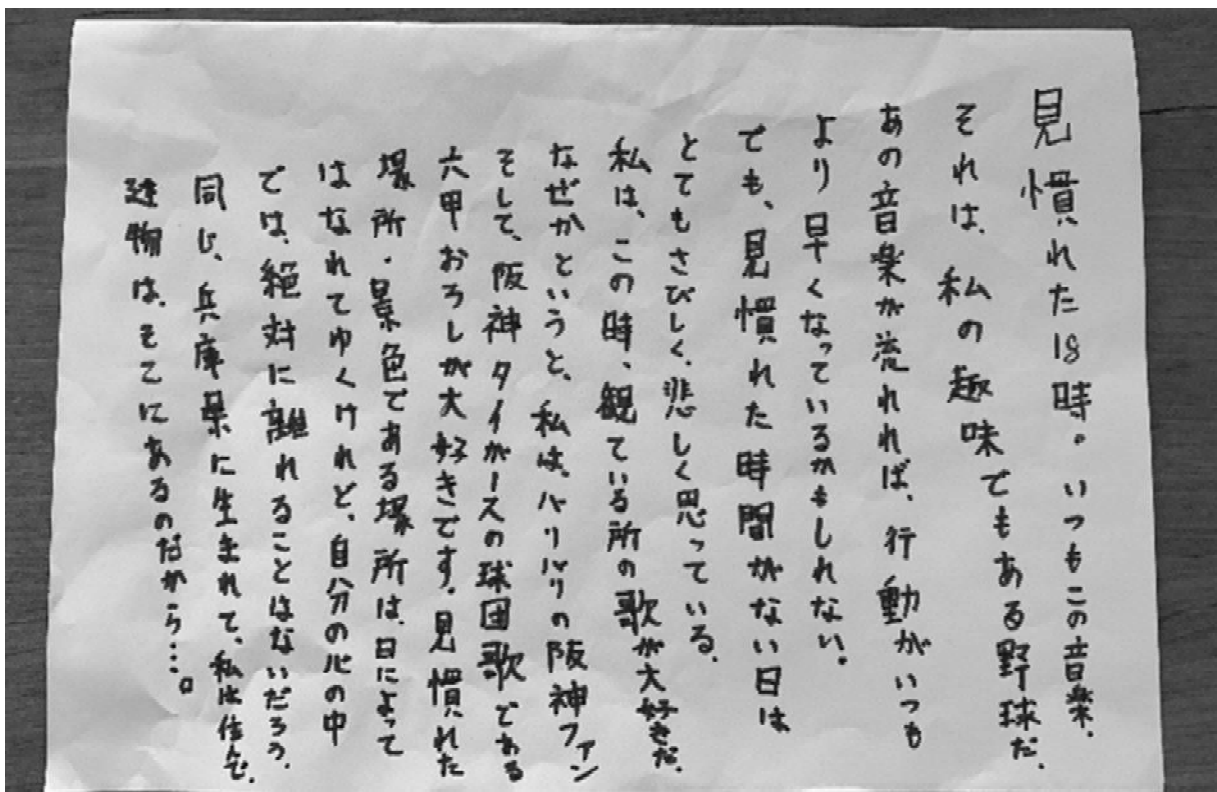 見慣れた18時。いつもこの音楽、
それは、私の趣味でもある野球だ、
あの音楽が流れれば、行動がいつも
より早くなっているかもしれない。
でも、見慣れた時間がない日は
とてもさびしく、悲しく思っている、
私は、この時、観ている所の歌が大好きだ、
なぜかというと、私は、バリバリの阪神ファン
そして、阪神タイガースの球団歌である
六甲おろしが大好きです、見慣れた
場所・景色である場所は、日によって
はなれてゆくけれど、自分の心の中
では、絶対に離れることはないだろう、
同じ、兵庫県に生まれて、私は住んで、
建物は、そこにあるのだから…。